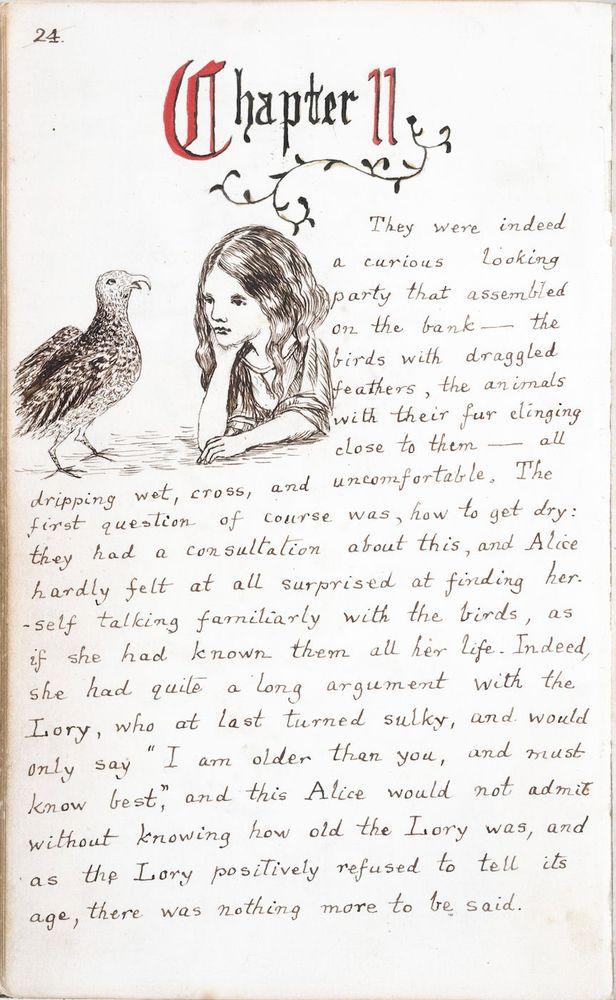 24.
Chapter II
They were indeed
a curious looking
party that assembled
on the bank — the
birds with draggled
feathers, the animals
with their fur clinging
close to them — all
dripping wet, cross, and uncomfortable. The
first question of course was, how to get dry:
they had a consultation about this, and Alice
hardly felt at all surprised at finding her-
-self talking familiarly with the birds, as
if she had known them all her life. Indeed,
she had quite a long argument with the
Lory, who at last turned sulky, and would
only say "I am older than you, and must
know best," and this Alice would not admit
without knowing how old the Lory was, and
as the Lory positively refused to tell its
age, there was nothing more to be said.